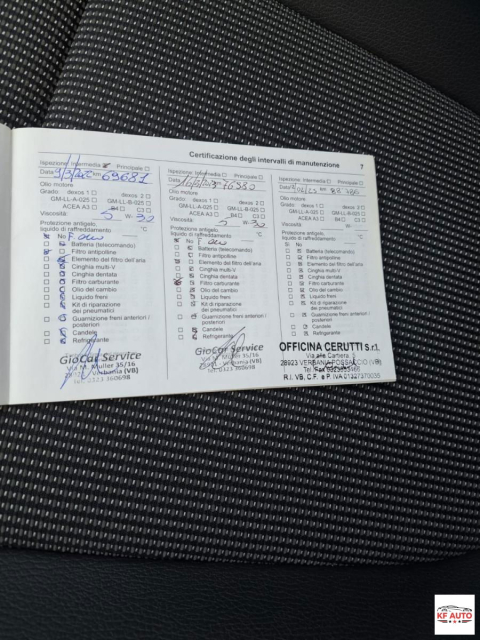 Certificazione degli intervalli di manutenzione 7
Ispezione: Intermedia Principale
Data km 69681
Olio motore
Grado: dexos 1 dexos 2
GM-LL-A-025 GM-LL-B-025
ACEA A3 B4
Viscosità: 5 W- 30
Protezione antigelo,
liquido di raffreddamento °C
No
Batteria (telecomando)
Filtro antipolline
Elemento del filtro dell'aria
Cinghia multi-V
Cinghia dentata
Filtro carburante
Olio del cambio
Liquido freni
Kit di riparazione
dei pneumatici
Guarnizione freni anteriori /
posteriori
Candele
Refrigerante
GioCar Service
Via M. Muller 35/16
Verbania (VB)
Tel. 0323 360698
Ispezione: Intermedia Principale
Data 76980
Olio motore
Grado: dexos 1 dexos 2
GM-LL-A-025 GM-LL-B-025
ACEA A3 B4 C3
Viscosità: 5 W- 30
Protezione antigelo,
liquido di raffreddamento °C
No
Batteria (telecomando)
Filtro antipolline
Elemento del filtro dell'aria
Cinghia multi-V
Cinghia dentata
Filtro carburante
Olio del cambio
Liquido freni
Kit di riparazione
dei pneumatici
Guarnizione freni anteriori /
posteriori
Candele
Refrigerante
GioCar Service
Via M. Muller 35/16
Verbania (VB)
Tel. 0323 360698
Ispezione: Intermedia Principale
Data km
Olio motore
Grado: dexos 1 dexos 2
GM-LL-A-025 GM-LL-B-025
ACEA A3 B4 C3
Viscosità: W-
Protezione antigelo,
liquido di raffreddamento °C
No
Batteria (telecomando)
Filtro antipolline
Elemento del filtro dell'aria
Cinghia multi-V
Cinghia dentata
Filtro carburante
Olio del cambio
Liquido freni
Kit di riparazione
dei pneumatici
Guarnizione freni anteriori /
posteriori
Candele
Refrigerante
OFFICINA CERUTTI S.r.l.
Via alle Cartiera
28923 VERBANIA POSSACCIO (VB)
Tel. Fax
R.I. VB, C.F. e P. IVA 01327370035
KF AUTO